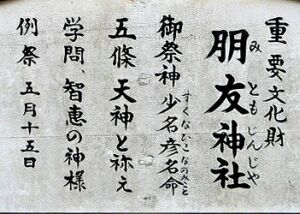 重要文化財
朋友神社
みともじんじゃ
御祭神 少名彦名命
すくなひこなのみこと
五條天神と祢え
学問、智恵の神様
例祭 五月十五日